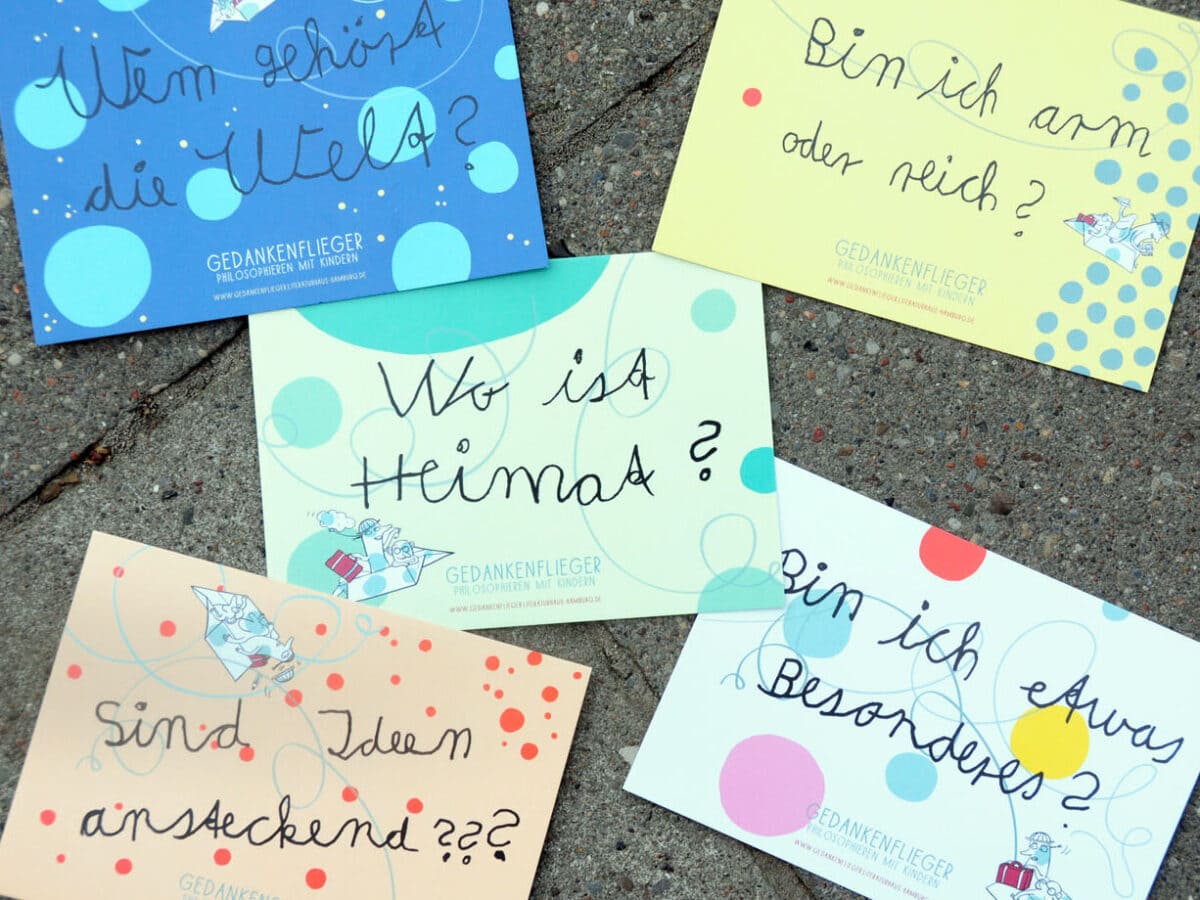 Wem gehört
die Welt?
GEDANKENFLIEGER
PHILOSOPHIEREN MIT KINDERN
WWW.GEDANKENFLIEGER.LITERATURHAUS-HAMBURG.DE
Bin ich arm
oder reich?
GEDANKENFLIEGER
PHILOSOPHIEREN MIT KINDERN
WWW.GEDANKENFLIEGER.LITERATURHAUS-HAMBURG.DE
Wo ist
Heimat?
GEDANKENFLIEGER
PHILOSOPHIEREN MIT KINDERN
WWW.GEDANKENFLIEGER.LITERATURHAUS-HAMBURG.DE
Sind Ideen
ansteckend???
GEDANKENFLIEGER
Bin ich etwas
Besonderes?
GEDANKENFLIEGER
PHILOSOPHIEREN MIT KINDERN
WWW.GEDANKENFLIEGER.LITERATURHAUS-HAMBURG.DE